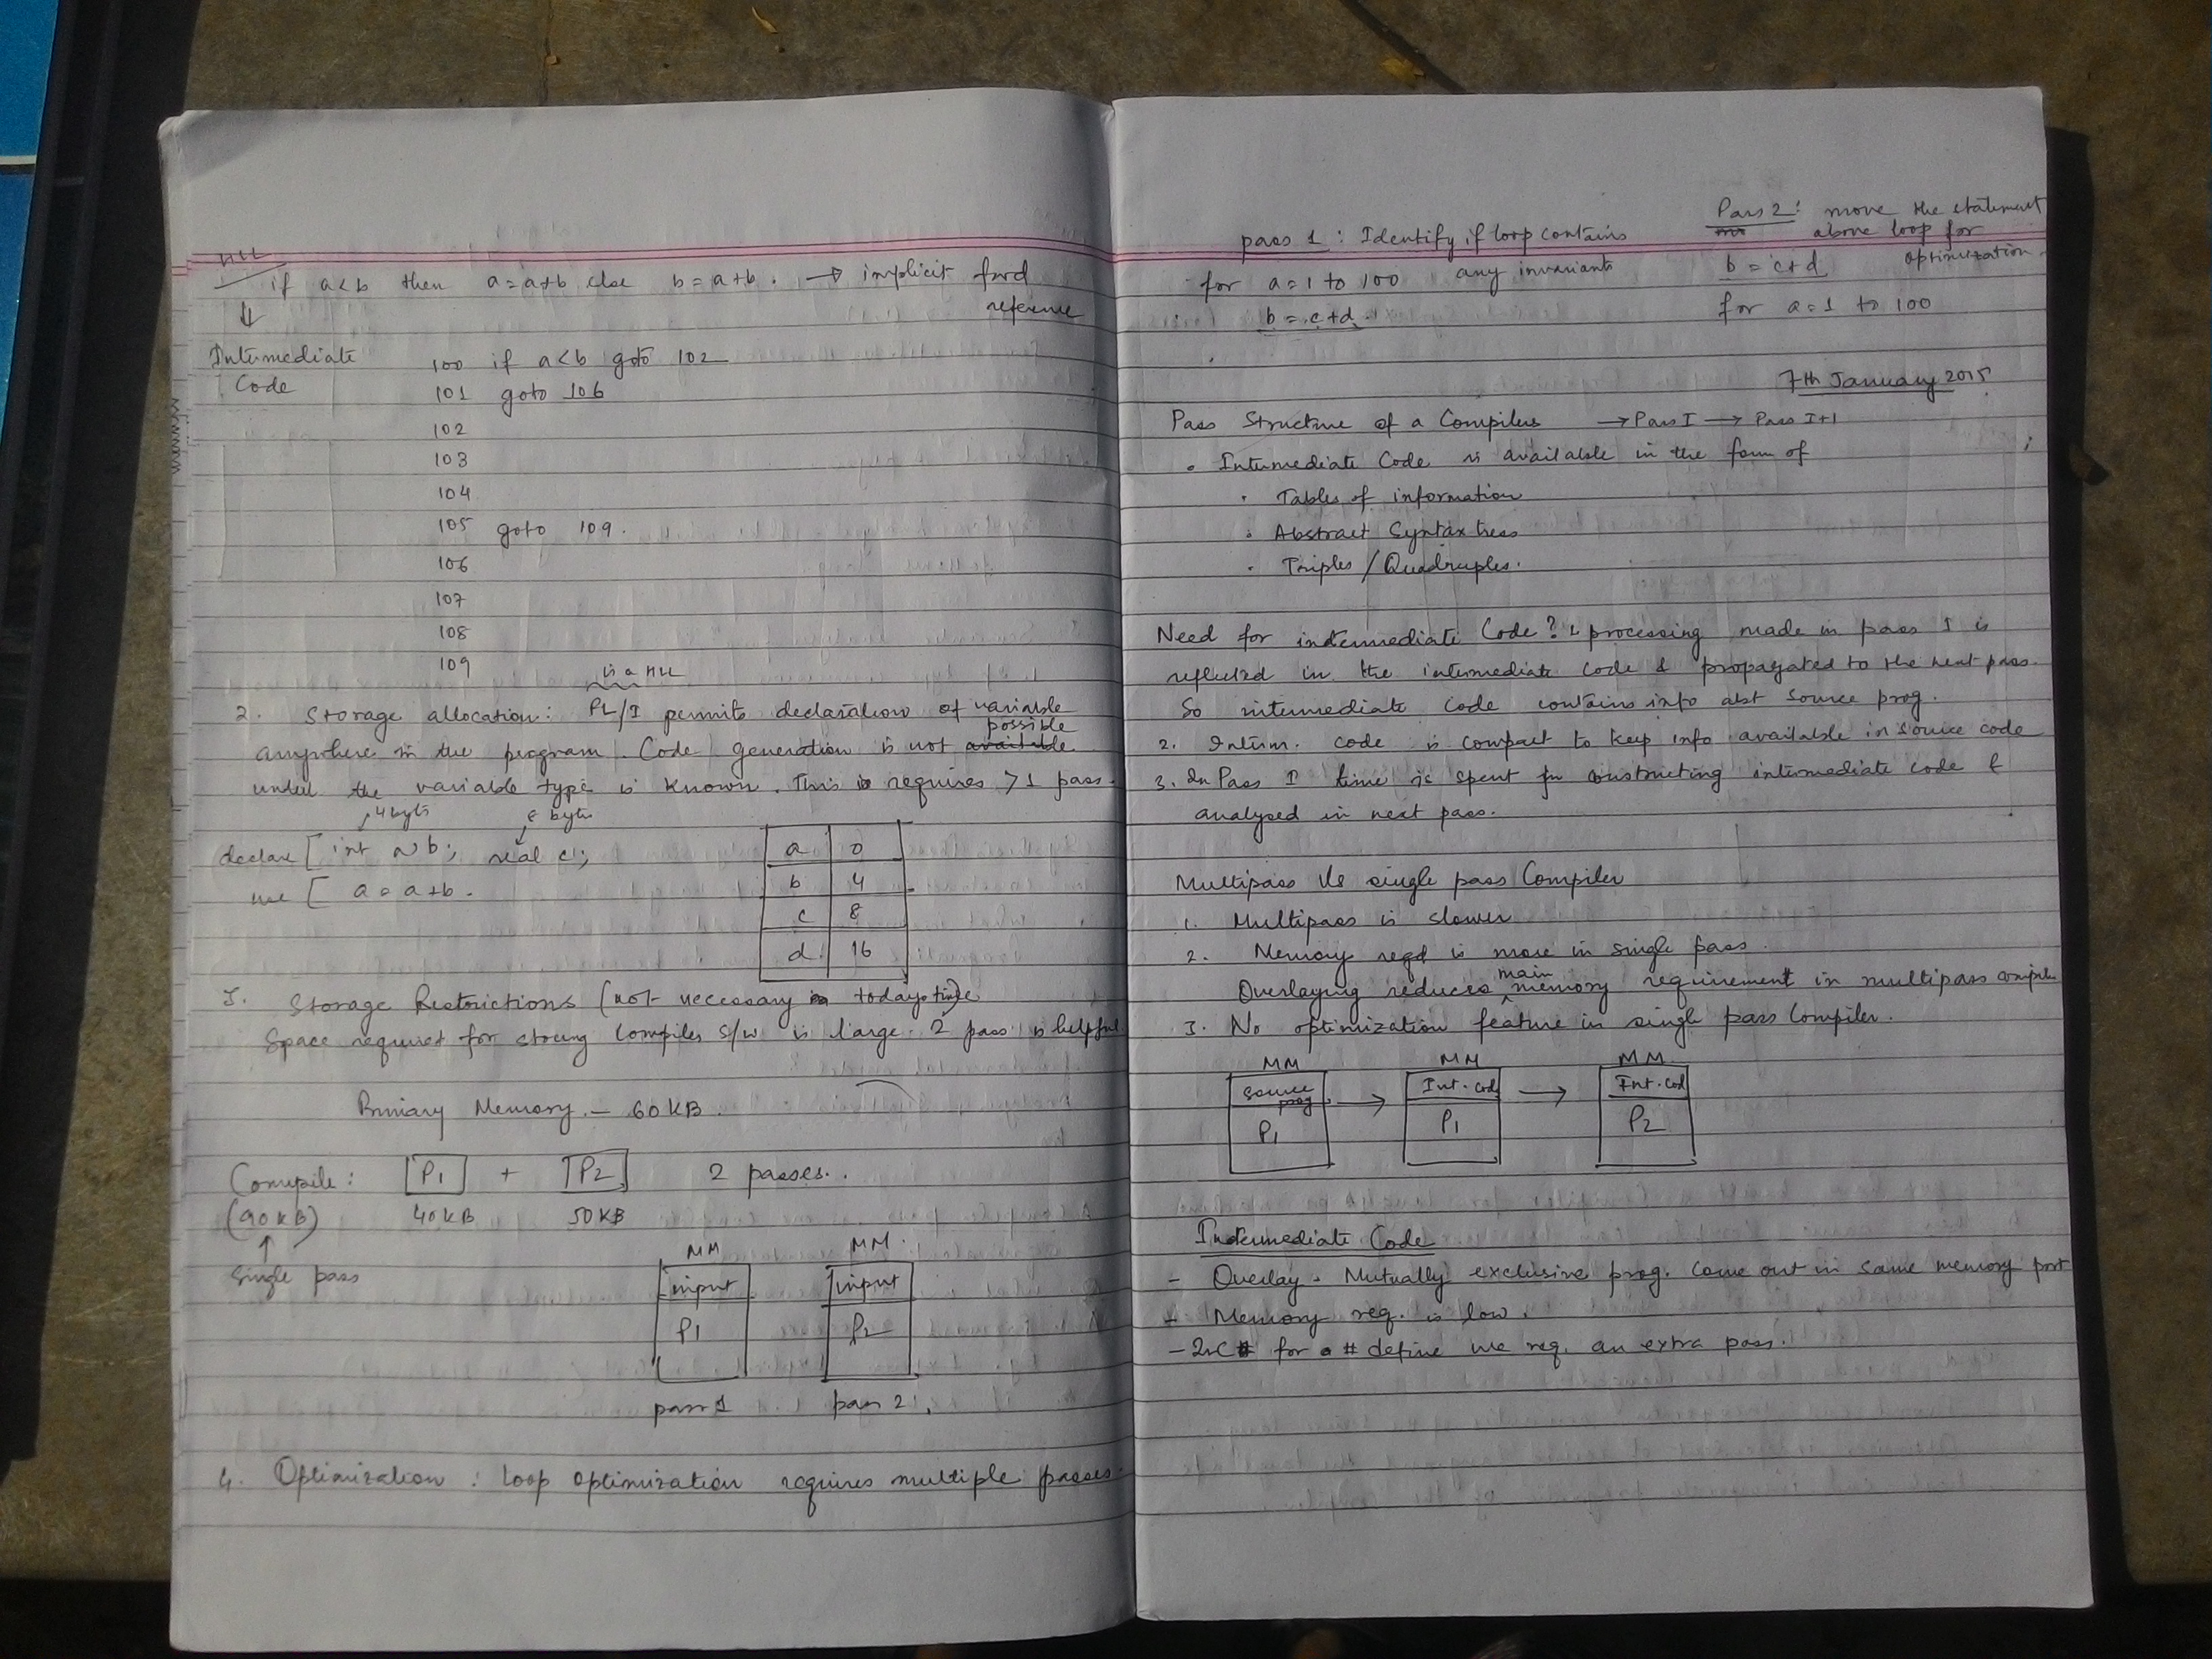 HLL
if a<b then a=a+b else b=a+b. → implicit fwrd
reference
Intermediate
Code
100 if a<b goto 102
101 goto 106
102
103
104
105 goto 109.
106
107
108
109
is a HLL
2. Storage allocation: PL/I permits declaration of variable
possible
anywhere in the program. Code generation is not available
until the variable type is known. This is requires >1 pass.
4 byts 8 byts
declare [ int a,b; real c;
use [ a = a+b.
a 0
b 4
c 8
d. 16
3. Storage Restrictions (not necessary in todays time)
Space requires for storing compiler s/w is large. 2 pass is helpful
Primary Memory – 60KB.
Compile: P1 + P2 2 passes..
(90KB) 40KB 50KB
↑
Single pass
MM MM.
input input
P1 P2
pass 1 pass 2.
4. Optimization : Loop optimization requires multiple passes.
pass 1 : Identify if loop contains
any invariants
for a=1 to 100
b = c+d.
Pass 2: move the statement
above loop for
optimization
b = c+d
for a=1 to 100
7th January 2015
Pass Structure of a Compilers → Pass I → Pass I+1
• Intermediate Code is available in the form of
• Tables of information
• Abstract Syntax trees
• Triples / Quadruples.
Need for intermediate Code? 1. processing made in pass I is
reflected in the intermediate code & propagated to the next pass.
So intermediate code contains info abt source prog.
2. Interm. code is compact to keep info available in source code
3. In Pass I time is spent for constructing intermediate code &
analysed in next pass.
Multipass Vs single pass Compiler
1. Multipass is slower
2. Memory reqd is more in single pass.
main
Overlaying reduces memory requirement in multipass compiler
3. No optimization feature in single pass Compiler.
MM MM MM.
Source prog → Int. cod → Int. cod
P1 P1 P2
Intermediate Code
- Overlay - Mutually exclusive prog. come out in same memory part
- Memory req. is low.
- In C # for a # define we req. an extra pass.